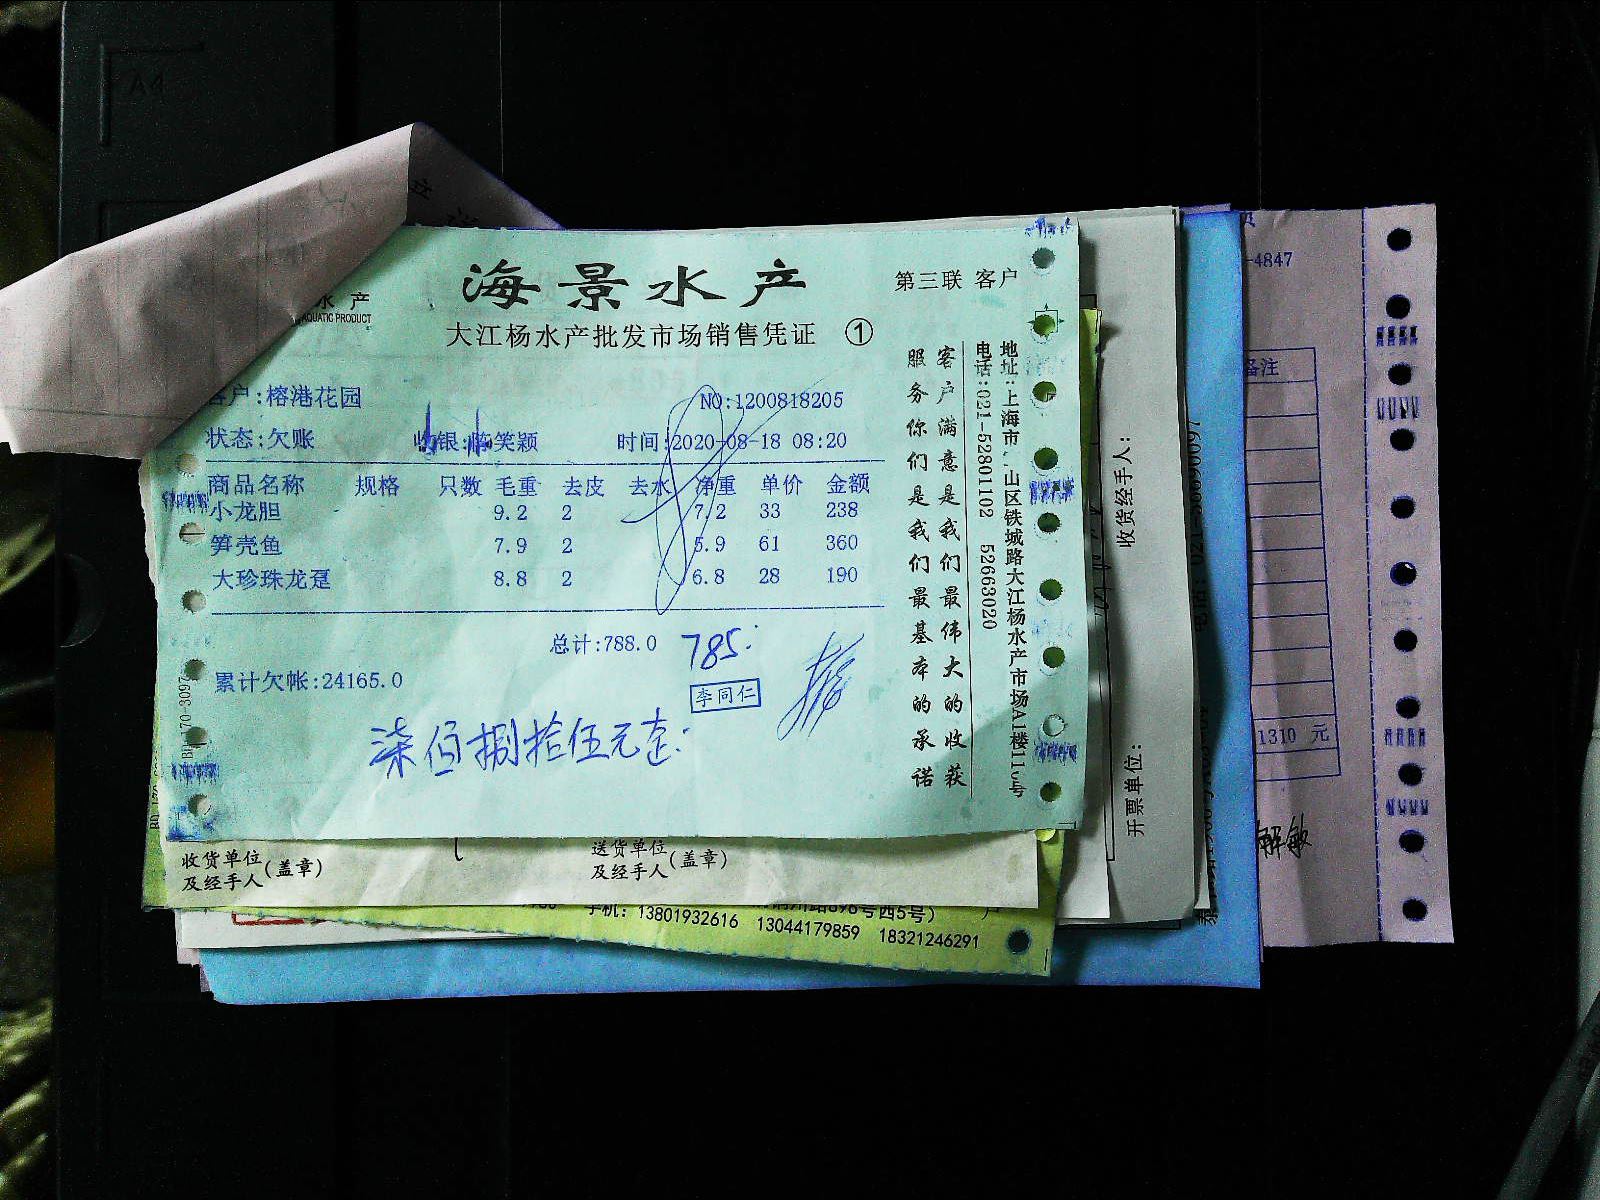 A4
水产
AQUATIC PRODUCT
海景水产
第三联 客户
大江杨水产批发市场销售凭证 ①
客户:榕港花园
NO:1200818205
状态:欠账
收银:陈笑颖
时间:2020-08-18 08:20
商品名称 规格 只数 毛重 去皮 去水 净重 单价 金额
小龙胆 9.2 2 7.2 33 238
笋壳鱼 7.9 2 5.9 61 360
大珍珠龙趸 8.8 2 6.8 28 190
总计:788.0
785.
累计欠帐:24165.0
李同仁
柒佰捌拾伍元整
客户满意是我们最伟大的收获
服务你们是我们最基本的承诺
地址:上海市 山区铁城路大江杨水产市场A1楼
电话:021-52801102 52663020
收货单位
及经手人(盖章)
送货单位
及经手人(盖章)
手机: 13801932616 13044179859 18321246291
收货经手人:
开票单位:
-4847
备注
1310 元
解敏